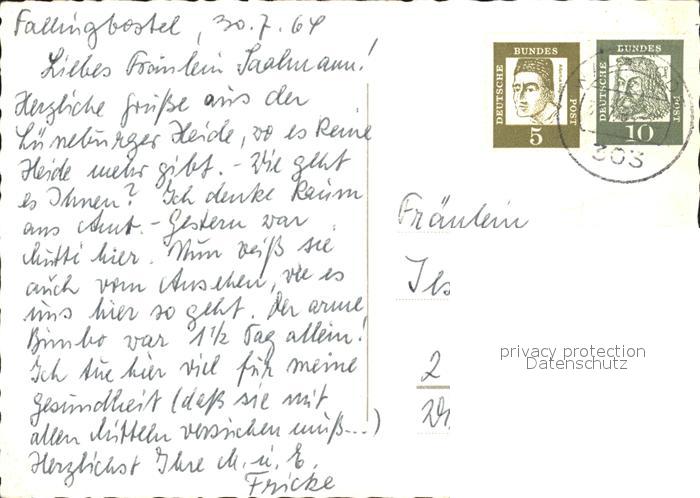 Fallingbostel, 30.7.64
Liebes Fräulein Saalmann!
Herzliche Grüße aus der
Lüneburger Heide, wo es keine
Heide mehr gibt. - Wie geht
es Ihnen? Ich denke kaum
ans Amt. - Gestern war
Mutti hier. Nun weiß sie
auch vom Ansehen, wie es
uns hier so geht. Der arme
Bimbo war 1½ Tag allein!
Ich tue hier viel für meine
Gesundheit (daß sie mit
allen Mitteln versuchen muß...)
Herzlichst Ihre M. u. E.
Fricke
DEUTSCHE BUNDES POST
5
DEUTSCHE BUNDES POST
10
303
Fräulein
2
privacy protection
Datenschutz